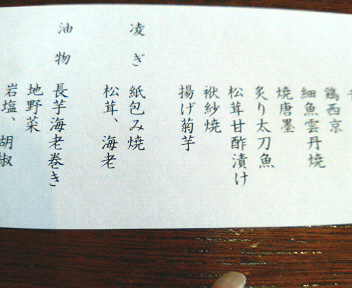 鶏西京
細魚雲丹焼
焼唐墨
炙り太刀魚
松茸甘酢漬け
袱紗焼
揚げ菊芋
凌ぎ 紙包み焼
松茸、海老
油物 長芋海老巻き
地野菜
岩塩、胡椒